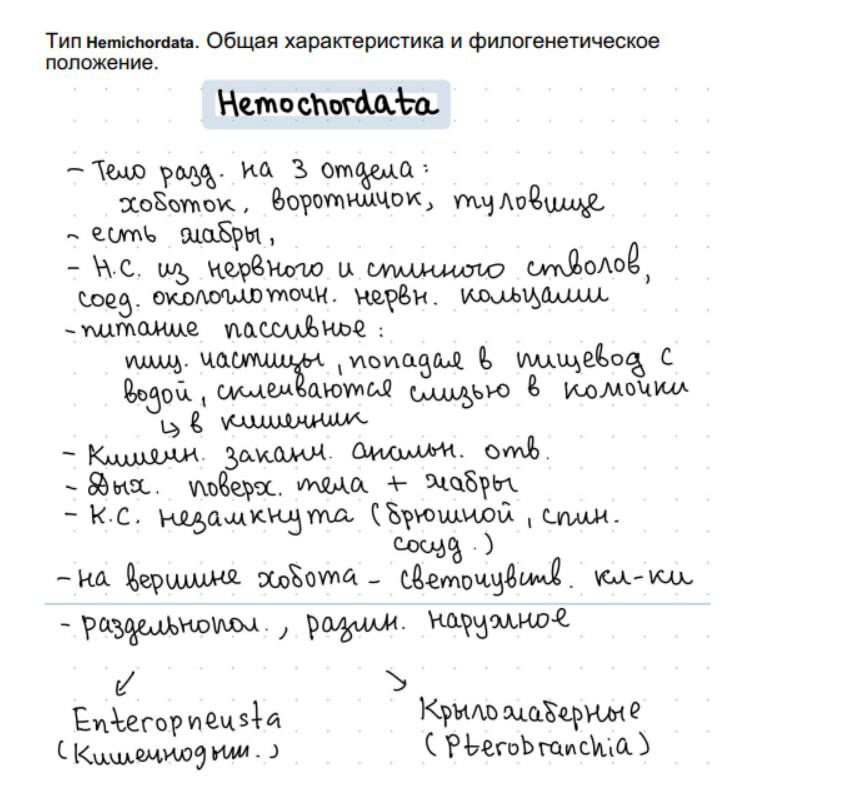 Тип Hemichordata. Общая характеристика и филогенетическое
положение.
Hemochordata
- Тело разд. на 3 отдела:
хоботок, воротничок, туловище
- есть жабры,
- Н.С. из нервного и спинного стволов,
соед. окологлоточн. нервн. кольцами
- питание пассивное:
пищ. частицы, попадая в пищевод с
водой, склеиваются слизью в комочки
↳ в кишечник
- Кишечн. заканч. анальн. отв.
- Дых. поверх. тела + жабры
- К.С. незамкнута (брюшной, спин.
сосуд.)
- на вершине хобота - светочувств. кл-ки
- раздельнопол., размн. наружное
↙ ↘
Enteropneusta Крыложаберные
(Кишечнодыш.) (Pterobranchia)